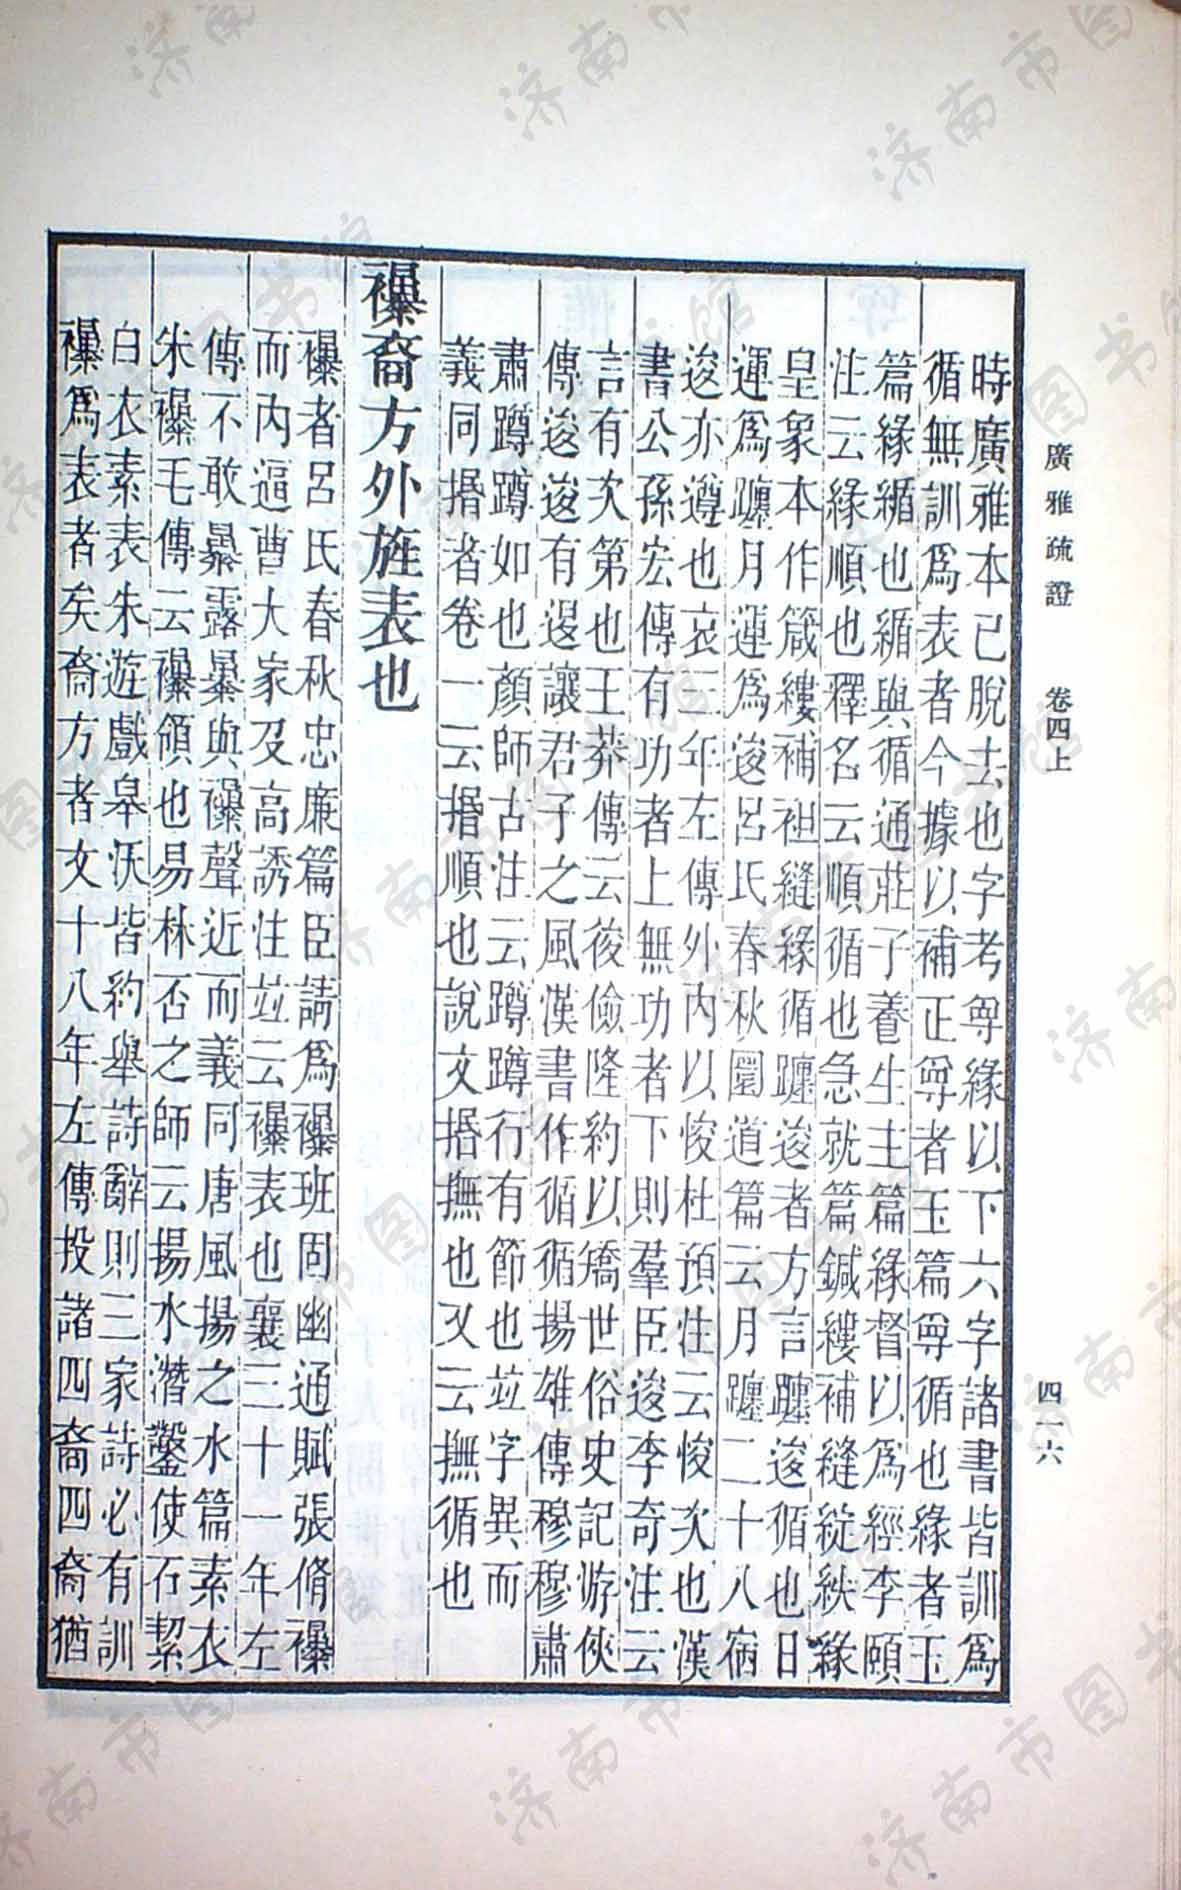 廣雅疏證 卷四上 四一六
時廣雅本已脫去也字考尊緣以下六字諸書皆訓爲
循無訓爲表者今據以補正尊者玉篇尊循也緣者玉
篇緣緧也緧與循通莊子養生主篇緣督以爲經李頤
注云緣順也釋名云順循也急就篇鍼縷補縫綻紩緣
皇象本作箴縷補袒縫緣循躔逡者方言躔逡循也日
運爲躔月運爲逡呂氏春秋圜道篇云月躔二十八宿
逡亦遵也哀三年左傳外內以悛杜預注云悛次也漢
書公孫宏傳有功者上無功者下則羣臣逡李奇注云
言有次第也王莽傳云後儉隆約以矯世俗史記游俠
傳逡逡有退讓君子之風漢書作循循揚雄傳穆穆肅
肅蹲蹲如也顏師古注云蹲蹲行有節也竝字異而
義同揗者卷一云揗順也說文揗撫也又云撫循也
襮裔方外旌表也
襮者呂氏春秋忠廉篇臣請爲襮班固幽通賦張脩襮
而內逼曹大家及高誘注竝云襮表也襄三十一年左
傳不敢暴露暴與襮聲近而義同唐風揚之水篇素衣
朱襮毛傳云襮領也易林否之師云揚水潛鑿使石絜
白衣素表朱遊戲皋沃皆約舉詩辭則三家詩必有訓
襮爲表者矣裔方者文十八年左傳投諸四裔四裔猶
济南市图书馆